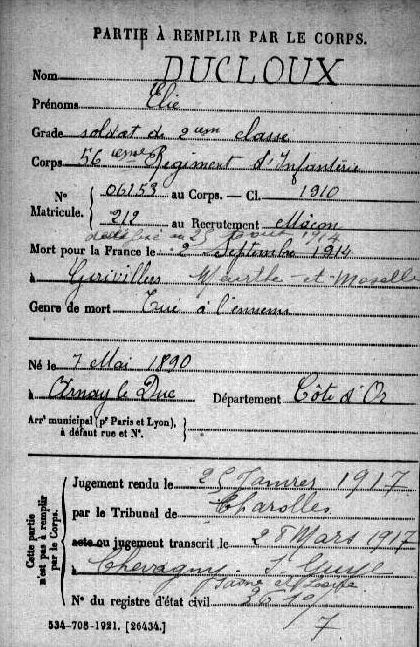 PARTIE À REMPLIR PAR LE CORPS.
Nom DUCLOUX
Prénoms Elie
Grade soldat de 2eme classe
Corps 56eme Régiment d'Infanterie
N° 06153 au Corps. — Cl. 1910
Matricule. 212 au Recrutement Mâcon
25
Mort pour la France le 2 Septembre 1914
à Gerivillers Meurthe-et-Moselle
Genre de mort Tué à l'ennemi
Né le 7 Mai 1890
à Arnay le Duc Département Côte d'Or
Arr^t municipal (p^r Paris et Lyon), à défaut rue et N°.
Cette partie n'est pas à remplir par le Corps.
Jugement rendu le 25 Janvier 1917
par le Tribunal de Charolles
acte ou jugement transcrit le 28 Mars 1917
à Chevagny s. Guye
Saône et Loire
N° du registre d'état civil
7
534-708-1921. [26434.]